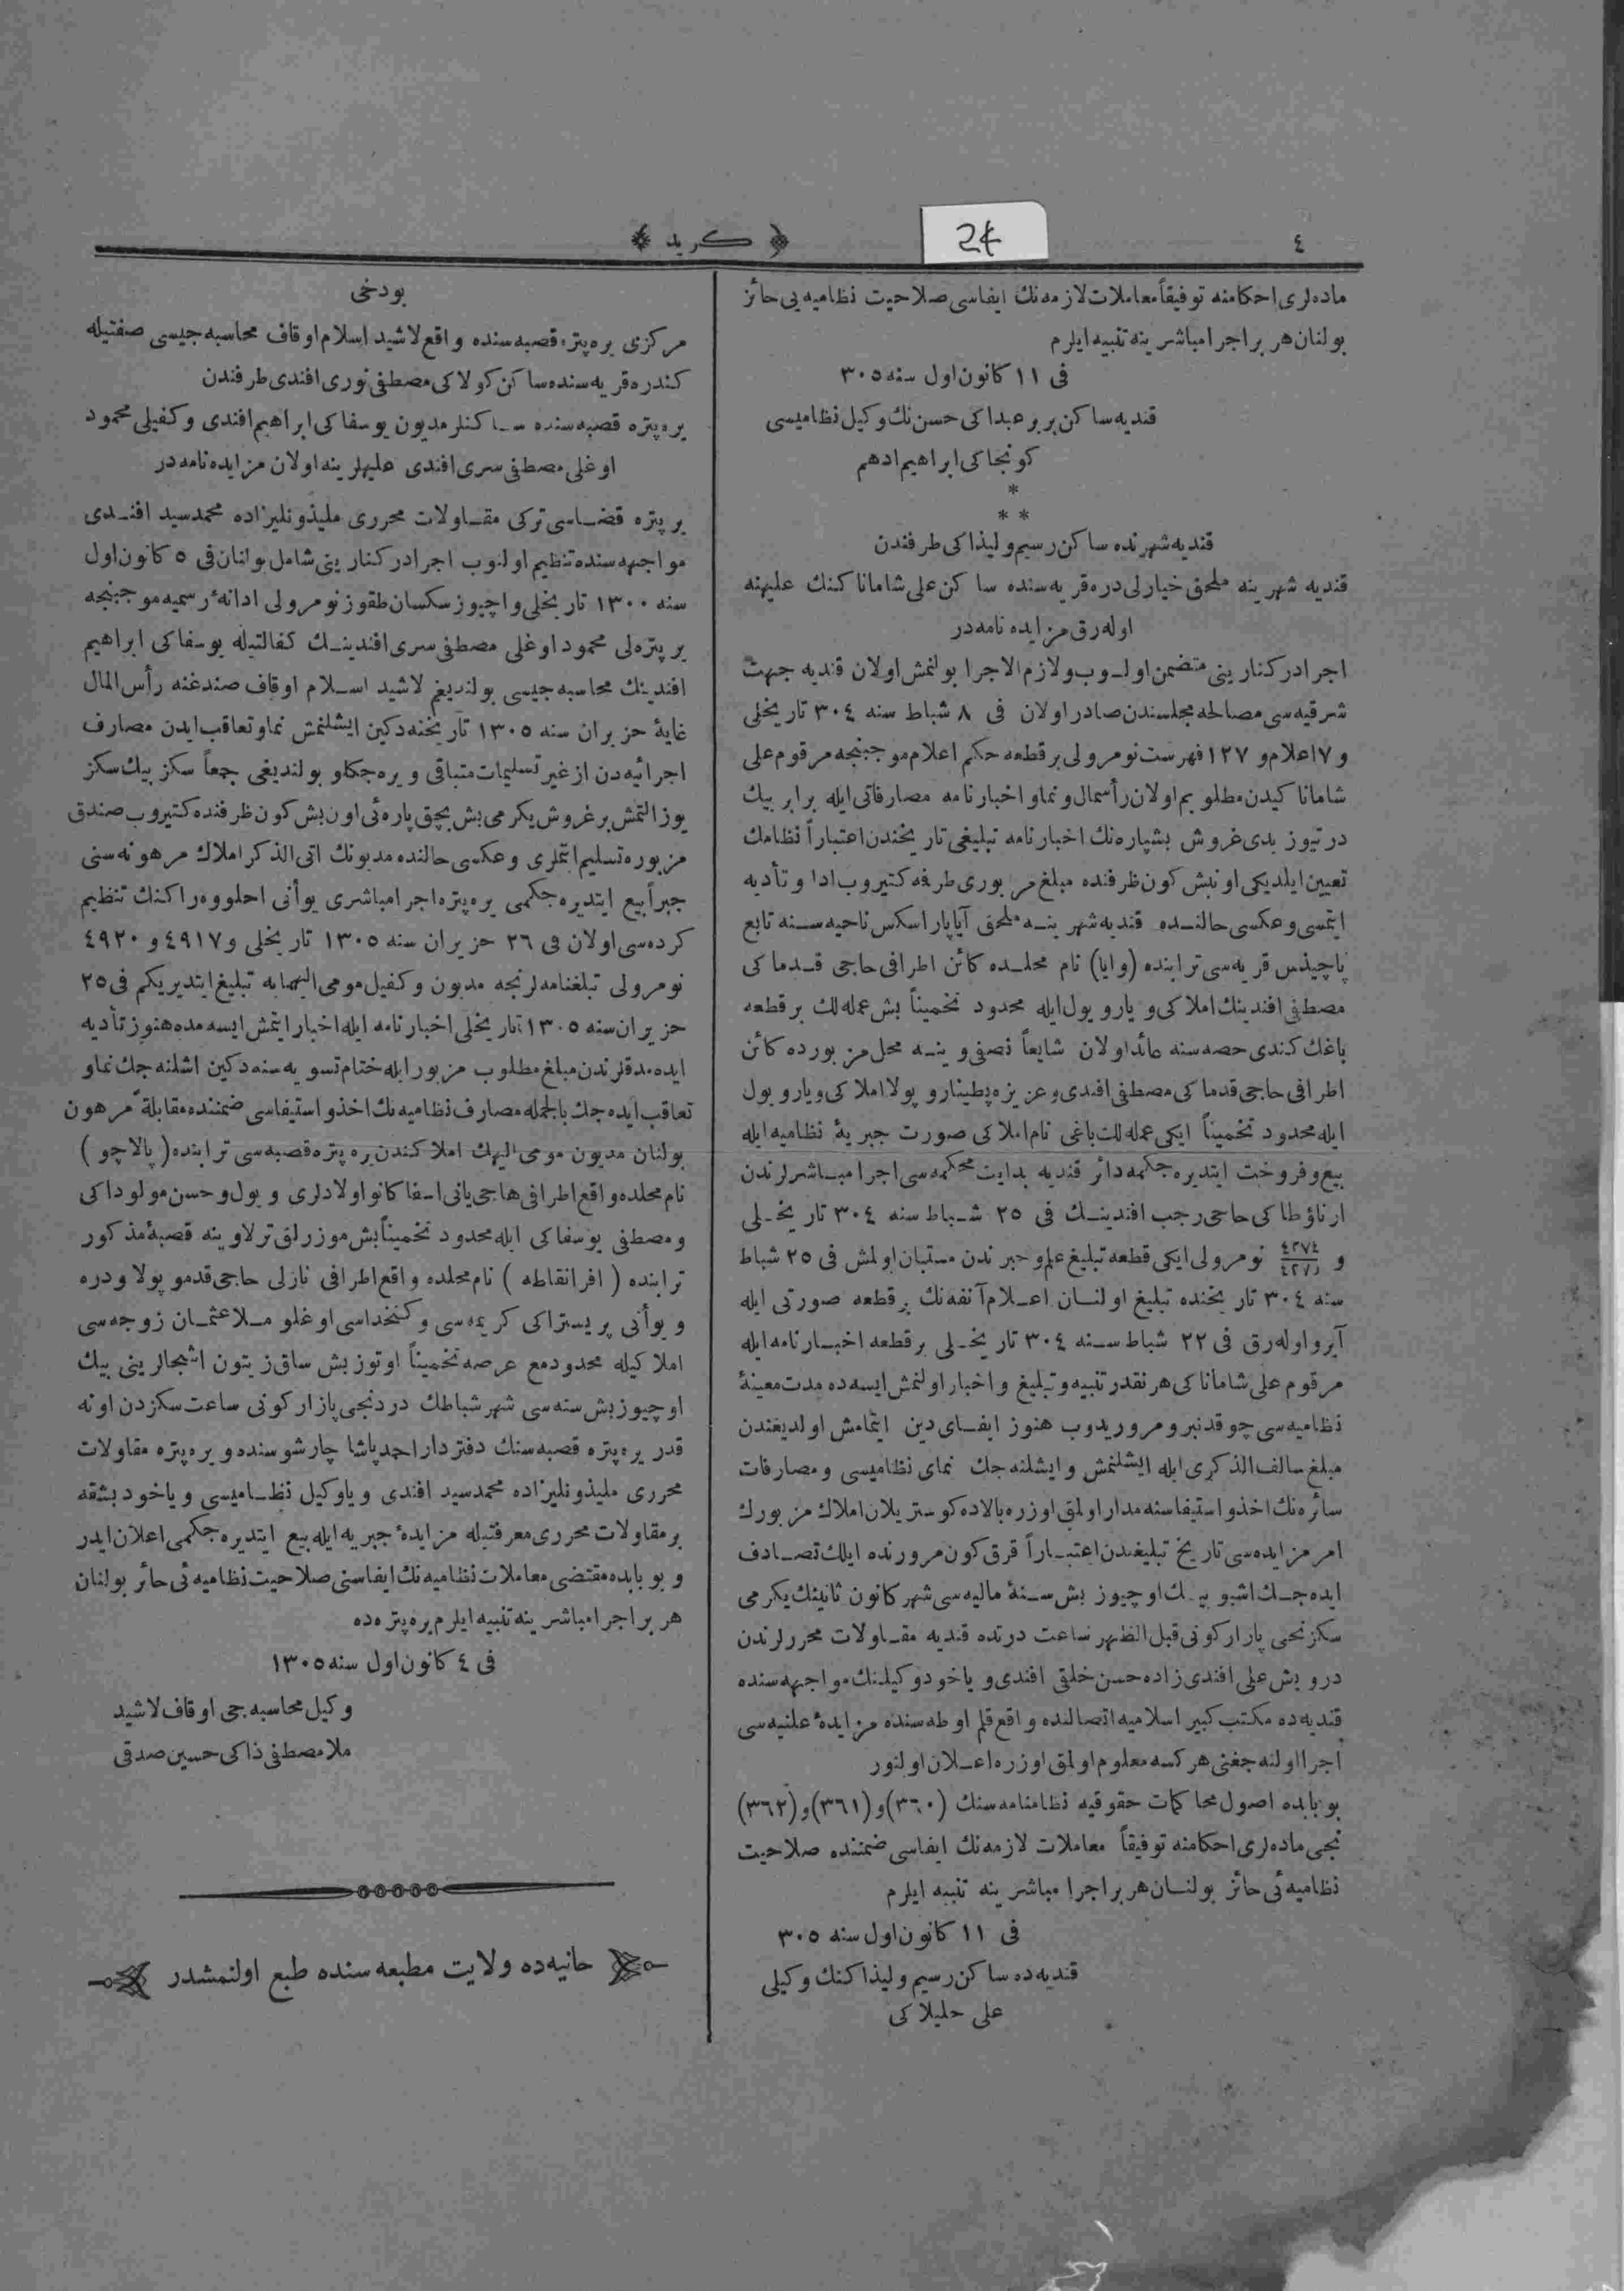 ٤
﴿ كريد ﴾
24
ماده‌لری احكامنه توفيقاً معاملات لازمه‌نك ايفاسی صلاحيت نظاميه‌یی حائز
بولنان هر بر اجرا مباشرينه تنبيه ايلرم
فی ١١ كانون اول سنه ٣٠٥
قنديه ساكن بربر عبداكی حسن‌نك وكيل نظاميسی
كونجاكی ابراهيم ادهم
*
* *
قنديه شهرنده ساكن رسيم وليذاكی طرفندن
قنديه شهرينه ملحق خيارلی دره قريه‌سنده ساكن علی شاماناكنك عليهنه
اوله‌رق مزايده نامه‌در
اجرا دركنارينی متضمن اولـوب ولازم الاجرا بولنمش اولان قنديه جهت
شرقيه‌سی مصالحه مجلسندن صادر اولان فی ٨ شباط سنه ٣٠٤ تاريخلی
و ١٧ اعلام و ١٢٧ فهرست نومرولی برقطعه حكم اعلام موجبنجه مرقوم علی
شاماناكيدن مطلوبم اولان رأسمال ونما و اخبارنامه مصارفاتی ايله برابر بيك
درتيوز يدی غروش بشپاره‌نك اخبارنامه تبليغی تاريخندن اعتباراً نظامك
تعيين ايلديكی اونبش كون ظرفنده مبلغ مزبوری طرفمه كتيروب ادا وتأديه
ايتمسی وعكسی حالنـده قنديه شهرينـه ملحق آياپاراسكس ناحيه‌سـنه تابع
پاچيذس قريه‌سی ترابنده (وايا) نام محلـده كائن اطرافی حاجی قـدماكی
مصطفی افندينك املاكی و يارو يول ايله محدود تخميناً بش عمله‌لك برقطعه
باغك كندی حصه‌سنه عائد اولان شايعاً نصفی و ينـه محل مزبورده كائن
اطرافی حاجی قدماكی مصطفی افندی وعزيزه پطيناروپولا املاكی ويارو يول
ايله محدود تخميناً ايكی عمله‌لك باغی نام املاكی صورت جبريهٔ نظاميه ايله
بيع وفروخت ايتديره‌جكمه دائر قنديه بدايت محكمه‌سی اجرا مبـاشرلرندن
ارناؤطاكی حاجی رجب افندينـك فی ٢٥ شـباط سنه ٣٠٤ تاريخـلی
و ٤٢٧٤ ٤٢٧٥ نومرولی ايكی قطعه تبليغ علم وخبرندن مستبان اولمش فی ٢٥ شباط
سنه ٣٠٤ تاريخنده تبليغ اولنـان اعـلام آنفه‌نك برقطعه صورتی ايله
آيرو اوله‌رق فی ٢٢ شباط سـنه ٣٠٤ تاريخـلی برقطعه اخبـارنامه ايله
مرقوم علی شاماناكی هر نقدر تنبيه وتبليغ و اخبار اولنمش ايسه‌ده مدت معينهٔ
نظاميه‌سی چوقدنبرو مرور يدوب هنوز ايفـای دين ايتمامش اولديغندن
مبلغ سالف الذكری ايله ايشلنمش و ايشلنه‌جك نمای نظاميسی و مصارفات
سائره‌نك اخذ و استيفاسنه مدار اولمق اوزره بالاده كوستريلان املاك مزبورك
امر مزايده‌سی تاريخ تبليغندن اعتبـاراً قرق كون مرورنده ايلك تصـادف
ايده‌جـك اشبو بيـك اوچيوز بش سـنهٔ ماليه‌سی شهر كانون ثانينك يكرمی
سكزنجی پازار كونی قبل الظهر ساعت درتده قنديه مقـاولات محررلرندن
درويش علی افندی زاده حسن خلقی افندی و ياخود وكيلنك مواجهه‌سنده
قنديه‌ده مكتب كبير اسلاميه اتصالنده واقع قلم اوطه‌سنده مزايدهٔ علنيه‌سی
اجرا اولنه‌جغنی هركسه معلوم اولمق اوزره اعـلان اولنور
بو بابده اصول محاكمات حقوقيه نظامنامه‌سنك (٣٦٠) و (٣٦١) و (٣٦٢)
نجی ماده‌لری احكامنه توفيقاً معاملات لازمه‌نك ايفاسی ضمننده صلاحيت
نظاميه‌ئی حائز بولنـان هر بر اجرا مباشرينه تنبيه ايلرم
فی ١١ كانون اول سنه ٣٠٥
قنديه‌ده ساكن رسيم وليذاكنك وكيلی
علی حليلاكی
بودخی
مركزی يره‌پتره قصبه‌سنده واقع لاشيد اسلام اوقاف محاسبه‌جيسی صفتيله
كندره قريه‌سنده ساكن كولاكی مصطفی نوری افندی طرفندن
يره‌پتره قصبه‌سنده سـاكنلر مديون يوسفاكی ابراهيم افندی وكفيلی محمود
اوغلی مصطفی سری افندی عليهلرينه اولان مزايده نامه‌در
يرپتره قضـاسی تركی مقـاولات محرری مليذونليزاده محمد سيد افنـدی
مواجهه‌سنده تنظيم اولنوب اجرا دركنارينی شامل بولنان فی ٥ كانون اول
سنه ١٣٠٠ تاريخلی و اچيوز سكسان طقوز نومرولی ادانهٔ رسميه موجبنجه
يرپتره‌لی محمود اوغلی مصطفی سری افندينـك كفالتيله يوسفاكی ابراهيم
افندينك محاسبه‌جيسی بولنديغم لاشيد اسـلام اوقاف صندغنه رأس المال
غايهٔ حزيران سنه ١٣٠٥ تاريخنه‌دكين ايشلنمش نما وتعاقب ايدن مصارف
اجرائيه‌دن از غير تسليمات متباقی ويره‌جكلو بولنديغی جمعاً سكز بيك سكز
يوز التمش برغروش يكرمی بش بچق پاره‌ئی اون بش كون ظرفنده كتيروب صندق
مزبوره تسليم ايتملری وعكسی حالنده مديونك اتی الذكر املاك مرهونه‌سنی
جبراً بيع ايتديره‌جكمی يره‌پتره اجرا مباشری يوأنی احلووه‌راكنك تنظيم
كرده‌سی اولان فی ٢٦ حزيران سنه ١٣٠٥ تاريخلی و ٤٩١٧ و ٤٩٢٠
نومرولی تبلغنامه‌لرنجه مديون وكفيل مومی اليهمايه تبليغ ايتديريكم فی ٢٥
حزيران سنه ١٣٠٥ تاريخلی اخبارنامه ايله اخبار ايتمش ايسه‌مده هنوز تأديه
ايده‌مدقلرندن مبلغ مطلوب مزبور ايله ختام تسويه‌سنه‌دكين اشلنه‌جك نما و
تعاقب ايده‌جك بالجمله مصارف نظاميه‌نك اخذ و استيفاسی ضمننده مقابلةً مرهون
بولنان مديون مومی اليهك املاكندن يره‌پتره قصبه‌سی ترابنده (پالاچو)
نام محلده واقع اطرافی هاجی يانی اسفاكانو اولادلری و يول وحسن مولوداكی
ومصطفی يوسفاكی ايله محدود تخميناً بش موزرلق ترلا وينه قصبهٔ مذكور
ترابنده (افرانقاطه) نام محلده واقع اطرافی نازلی حاجی قدموپولا ودره
و يوأنی پريستراكی كريمه‌سی وكتخداسی اوغلو مـلا عثمـان زوجه‌سی
املاكيله محدود مع عرصه تخميناً اوتوز بش ساق زيتون اشجالرينی بيك
اوچيوز بش سنه‌سی شهر شباطك دردنجی پازار كونی ساعت سكزدن اونه
قدر يره‌پتره قصبه‌سنك دفتردار احمد پاشا چارشوسنده و يره‌پتره مقاولات
محرری مليذونليزاده محمد سيد افندی وياوكيل نظـاميسی و ياخود بشقه
برمقاولات محرری معرفتيله مزايدهٔ جبريه ايله بيع ايتديره‌جكمی اعلان ايدر
و بو بابده مقتضی معاملات نظاميه‌نك ايفاسنی صلاحيت نظاميه‌ئی حائز بولنان
هر بر اجرا مباشرينه تنبيه ايلرم يره‌پتره‌ده
فی ٤ كانون اول سنه ١٣٠٥
وكيل محاسبه‌جی اوقاف لاشيد
ملا مصطفی ذاكی حسين صدقی
حانيه‌ده ولايت مطبعه‌سنده طبع اولنمشدر